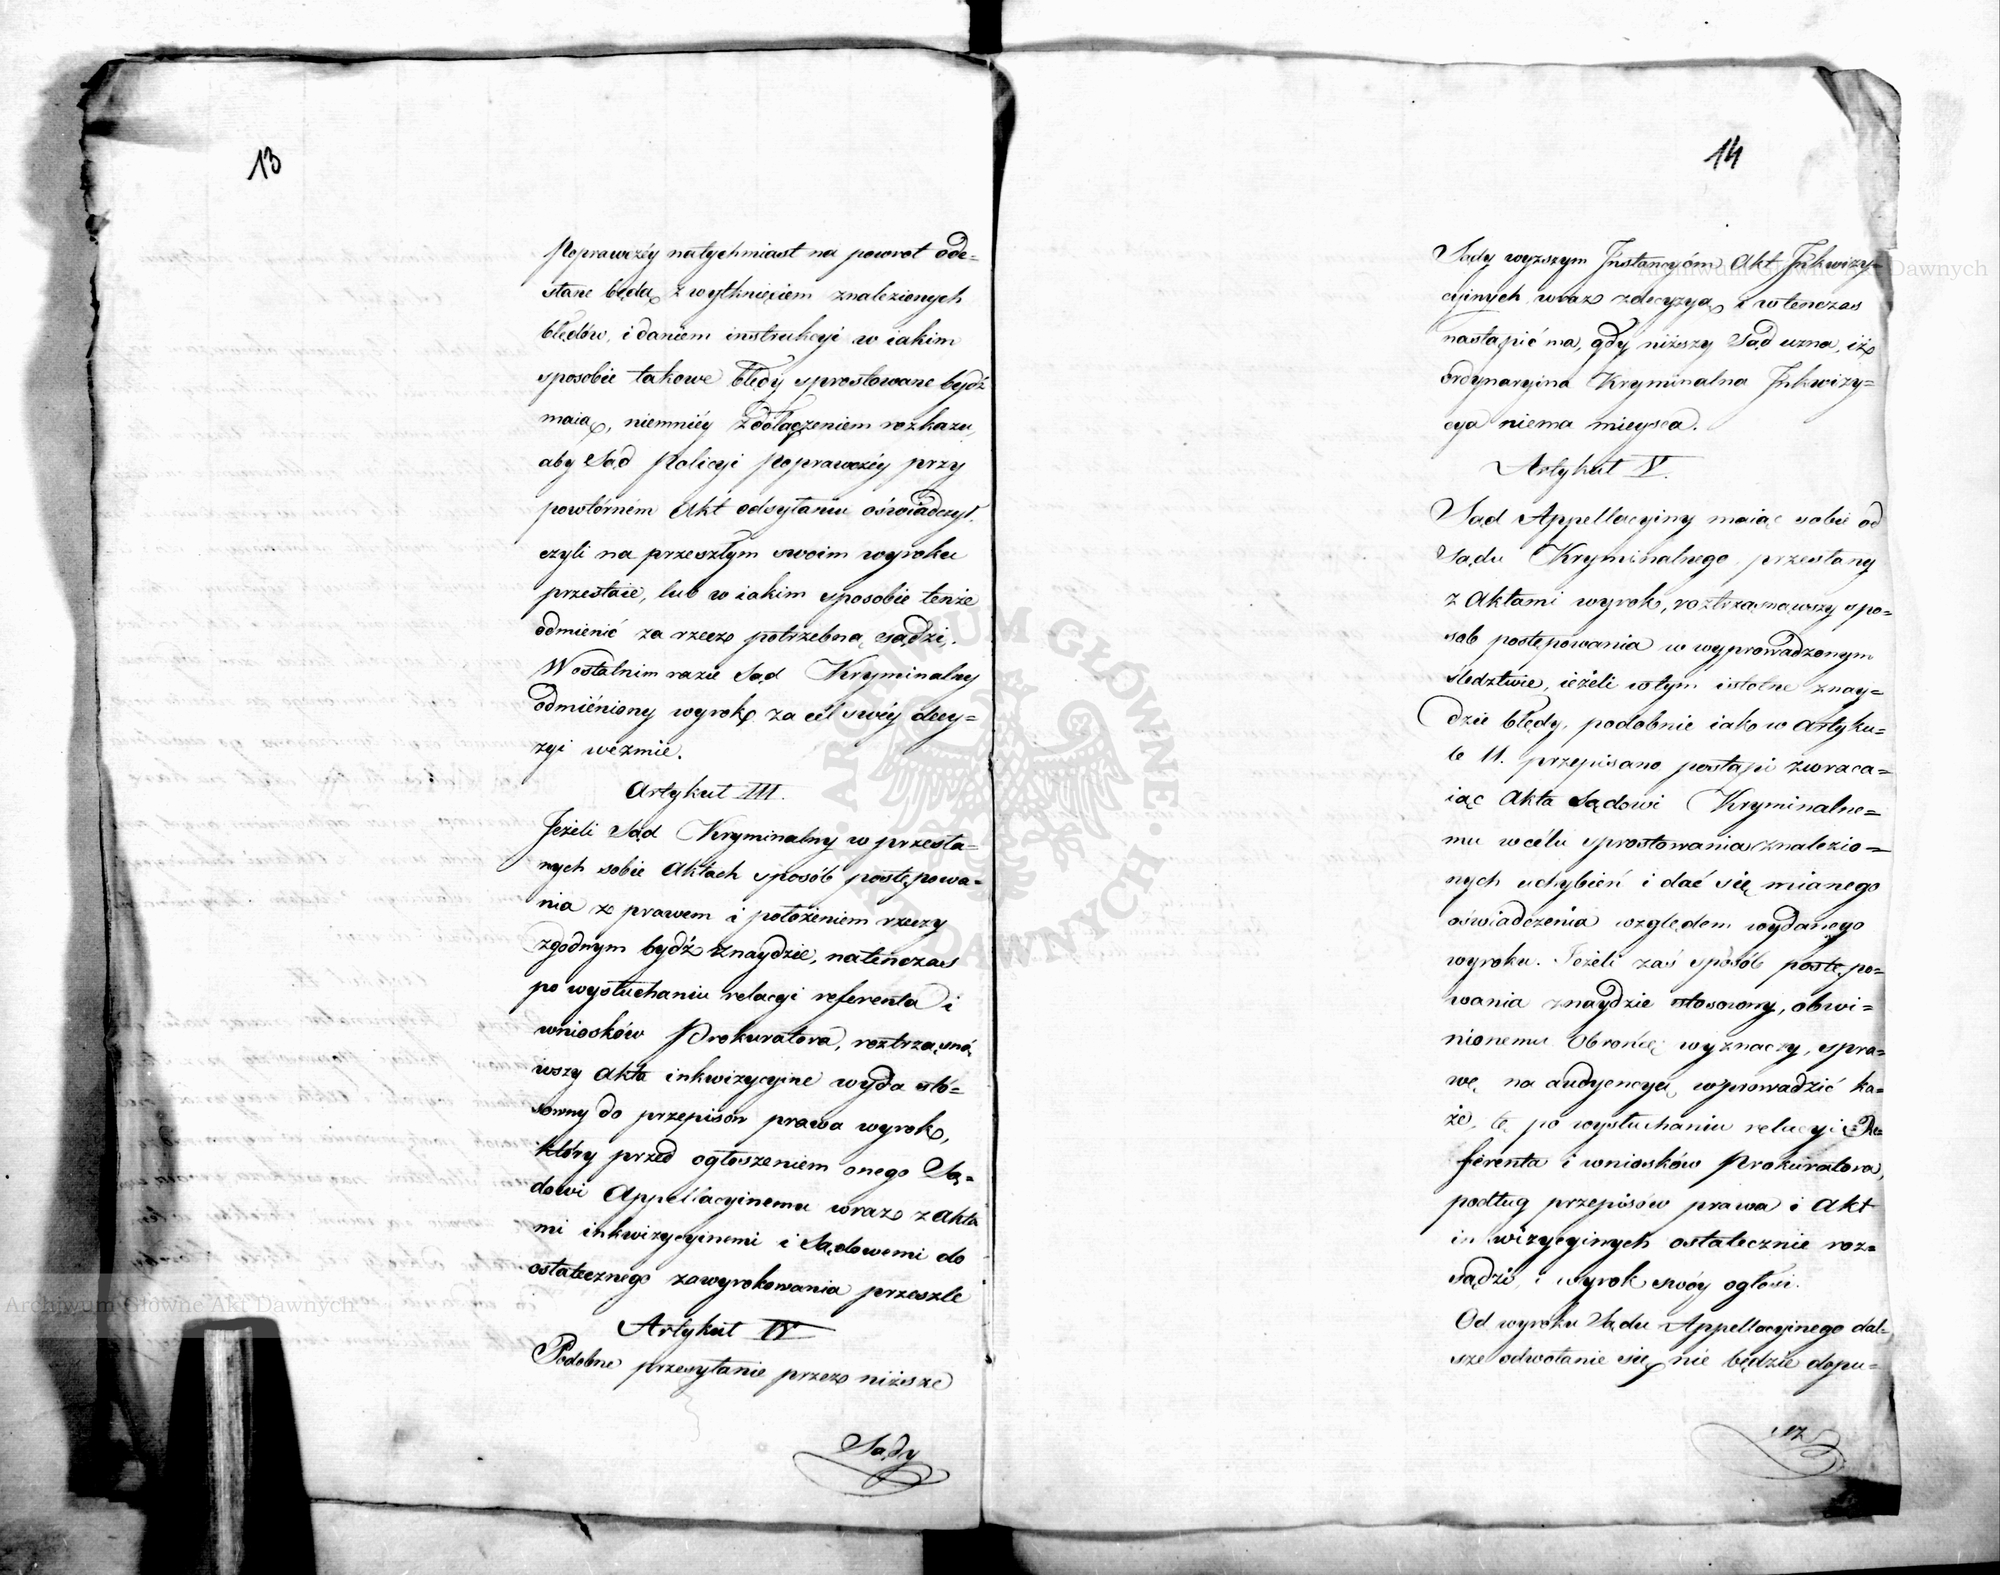 13
Poprawczéy natychmiast na powrot ode-
słane będą z wytknięciem znalezionych
błędów, i daniem instrukcyi w iakim
sposobie takowe błędy sprostowane bydź
maią, niemniéy z dołączeniem rozkazu,
aby Sąd Policyi Poprawczéy przy
powtórném Akt odsyłaniu oświadczył,
czyli na przeszłym swoim wyroku
przestaie, lub w iakim sposobie tenże
odmienić za rzecz potrzebną sądzi.
W ostatnim razie Sąd Kryminalny
odmiéniony wyrok za cél swéy decy=
zyi weźmie.
Artykuł III.
Jeżeli Sąd Kryminalny w przesła-
nych sobie Aktach sposób postępowa-
nia z prawem i położeniem rzeczy
zgodnym bydź znaydzie, natenczas
po wysłuchaniu relacyi referenta i
wniosków Prokuratora, roztrząsną
wszy Akta inkwizycyine wyda stó=
sowny do przepisów prawa wyrok,
który przed ogłoszeniem onego Są=
dowi Appellacyinemu wraz z Akta
mi inkwizycyinemi i Sądowemi do
ostatecznego zawyrokowania przeszle
Artykuł IV
Podobne przesyłanie przez niższe
Sądy
14
Sądy wyzszym Instancyóm Akt Inkwizy-
cyinych wraz z decyzyą i wtenczas
nastąpić ma, gdy niższy Sąd uzna, iż
ordynaryina Kryminalna Inkwizy=
cya niema mieysca.
Artykuł V.
Sąd Appellacyiny maiąc sobie od
Sądu Kryminalnego przesłany
z Aktami wyrok, roztrząsnąwszy spo=
sob postępowania w wyprowadzonym
śledztwie, ieżeli w tym istotne znay=
dzie błędy, podobnie iako w Artyku=
le 11. przepisano postąpi zwraca=
iąc Akta Sądowi Kryminalne=
mu w célu sprostowania znalezio=
nych uchybień i dać się mianego
oświadczenia względem wydanego
wyroku. Jeżeli zaś sposób postępo-
wania znaydzie stosowny, obwi=
nionemu Obrońcę wyznaczy, spra=
wę na audyencyą wprowadzić ka=
że, tę po wysłuchaniu relacyi Re=
ferenta i wniosków Prokuratora,
podług przepisów prawa i Akt
inkwizycyinych ostatecznie roz=
sądzi, i wyrok swóy ogłosi.
Od wyroku Sądu Appellacyinego dal=
sze odwołanie się nie będzie dopu=
sz
ARCHIWUM GŁÓWNE AKT DAWNYCH
Archiwum Główne Akt Dawnych
Archiwum Główne Akt Dawnych